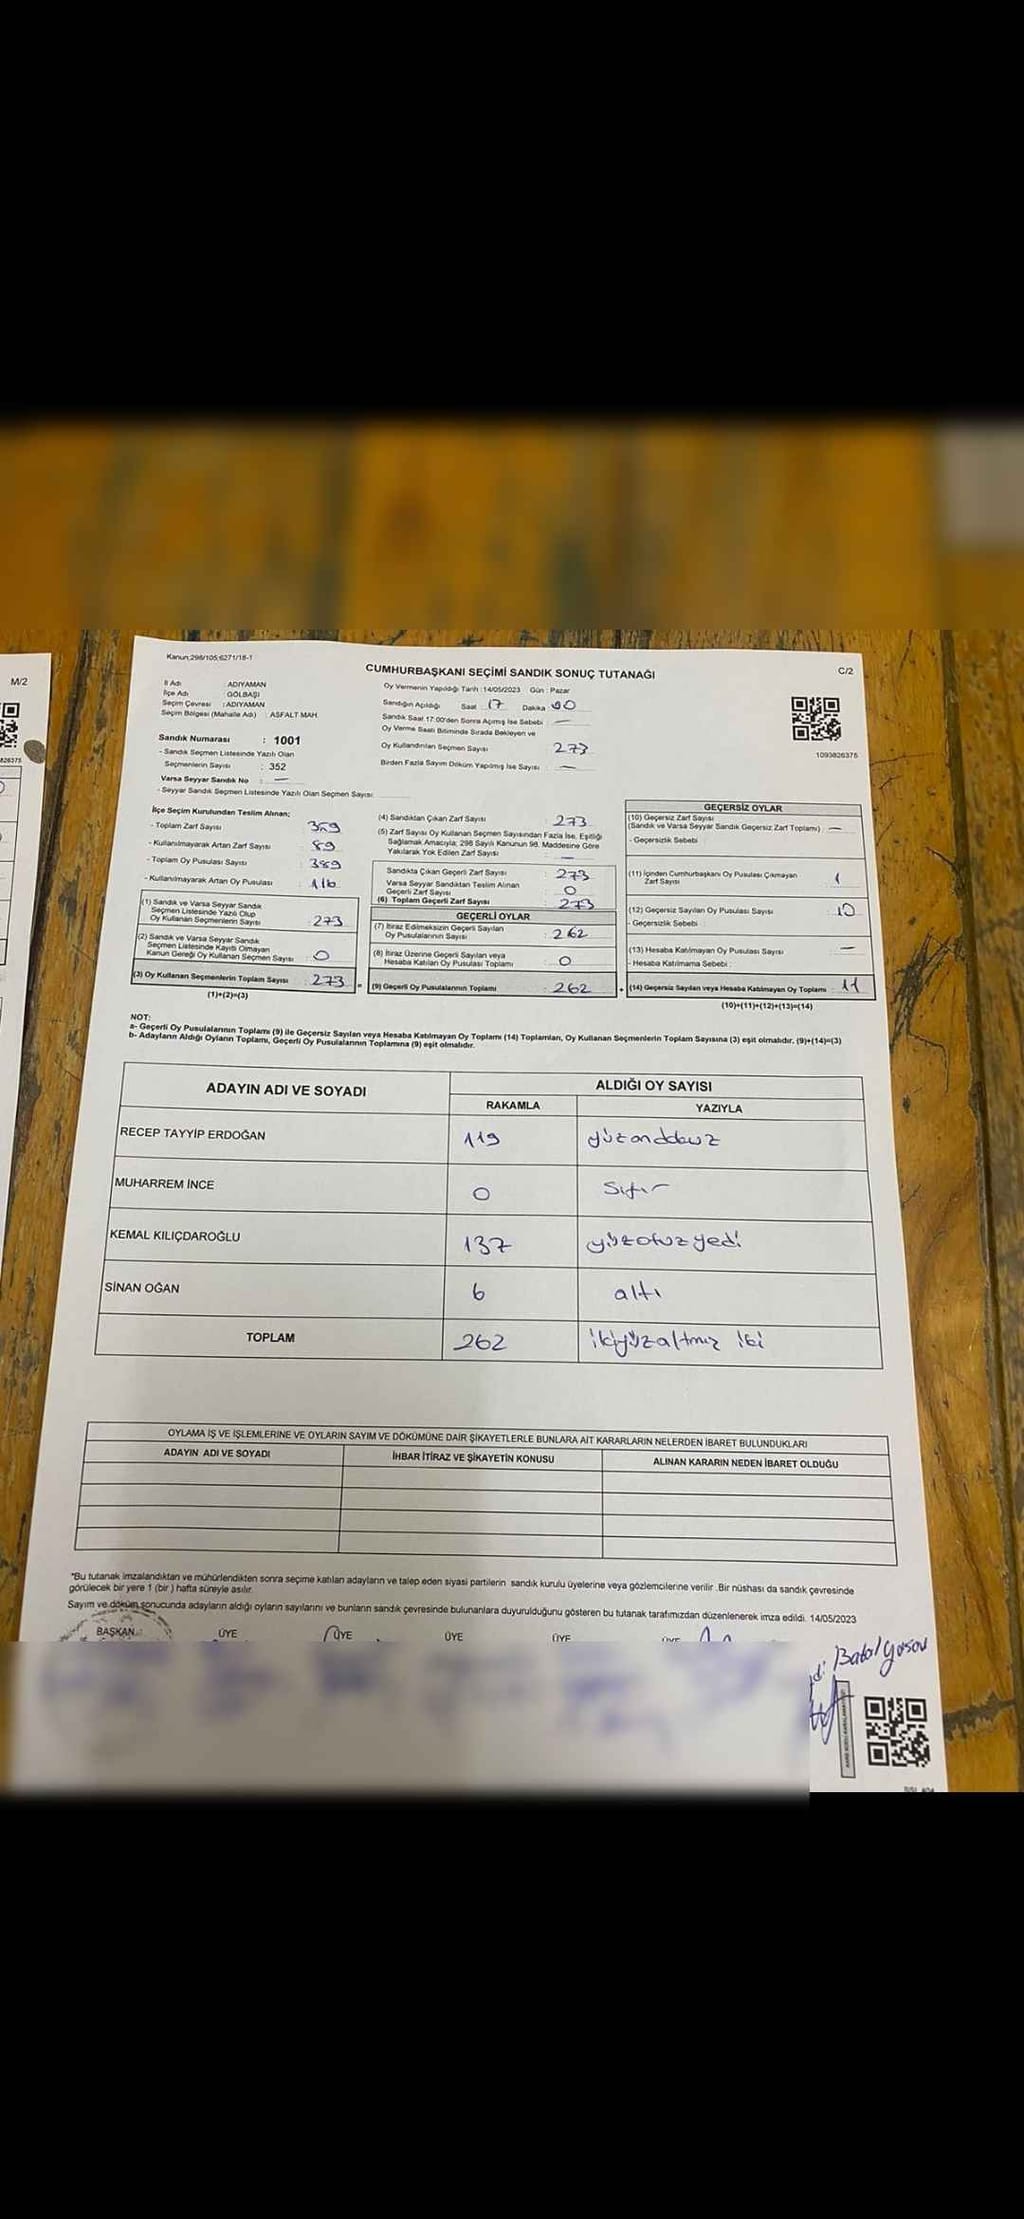 M/2
826375
Kanun:298/105;6271/18-1
CUMHURBAŞKANI SEÇİMİ SANDIK SONUÇ TUTANAĞI
C/2
İl Adı : ADIYAMAN
İlçe Adı : GÖLBAŞI
Seçim Çevresi : ADIYAMAN
Seçim Bölgesi (Mahalle Adı) : ASFALT MAH.
Sandık Numarası : 1001
- Sandık Seçmen Listesinde Yazılı Olan
Seçmenlerin Sayısı : 352
Varsa Seyyar Sandık No : —
- Seyyar Sandık Seçmen Listesinde Yazılı Olan Seçmen Sayısı:
Oy Vermenin Yapıldığı Tarih :14/05/2023 Gün : Pazar
Sandığın Açıldığı Saat 17 Dakika 00
Sandık Saat 17:00'den Sonra Açılmış İse Sebebi : —
Oy Verme Saati Bitiminde Sırada Bekleyen ve
Oy Kullandırılan Seçmen Sayısı 273
Birden Fazla Sayım Döküm Yapılmış İse Sayısı : —
1093826375
İlçe Seçim Kurulundan Teslim Alınan;
- Toplam Zarf Sayısı
- Kullanılmayarak Artan Zarf Sayısı : 89
- Toplam Oy Pusulası Sayısı : 389
- Kullanılmayarak Artan Oy Pusulası : 116
(1) Sandık ve Varsa Seyyar Sandık
Seçmen Listesinde Yazılı Olup
Oy Kullanan Seçmenlerin Sayısı : 273
(2) Sandık ve Varsa Seyyar Sandık
Seçmen Listesinde Kayıtlı Olmayan
Kanun Gereği Oy Kullanan Seçmen Sayısı : 0
(3) Oy Kullanan Seçmenlerin Toplam Sayısı : 273
(1)+(2)=(3)
=
(4) Sandıktan Çıkan Zarf Sayısı : 273
(5) Zarf Sayısı Oy Kullanan Seçmen Sayısından Fazla İse, Eşitliği
Sağlamak Amacıyla; 298 Sayılı Kanunun 98. Maddesine Göre
Yakılarak Yok Edilen Zarf Sayısı : —
Sandıkta Çıkan Geçerli Zarf Sayısı : 273
Varsa Seyyar Sandıktan Teslim Alınan
Geçerli Zarf Sayısı : 0
(6) Toplam Geçerli Zarf Sayısı : 273
GEÇERLİ OYLAR
(7) İtiraz Edilmeksizin Geçerli Sayılan
Oy Pusulalarının Sayısı : 262
(8) İtiraz Üzerine Geçerli Sayılan veya
Hesaba Katılan Oy Pusulası Toplamı : 0
(9) Geçerli Oy Pusulalarının Toplamı : 262
+
GEÇERSİZ OYLAR
(10) Geçersiz Zarf Sayısı
(Sandık ve Varsa Seyyar Sandık Geçersiz Zarf Toplamı) : —
- Geçersizlik Sebebi
(11) İçinden Cumhurbaşkanı Oy Pusulası Çıkmayan
Zarf Sayısı : 1
(12) Geçersiz Sayılan Oy Pusulası Sayısı : 10
- Geçersizlik Sebebi
(13) Hesaba Katılmayan Oy Pusulası Sayısı : —
- Hesaba Katılmama Sebebi :
(14) Geçersiz Sayılan veya Hesaba Katılmayan Oy Toplamı : 11
(10)+(11)+(12)+(13)=(14)
NOT:
a- Geçerli Oy Pusulalarının Toplamı (9) ile Geçersiz Sayılan veya Hesaba Katılmayan Oy Toplamı (14) Toplamları, Oy Kullanan Seçmenlerin Toplam Sayısına (3) eşit olmalıdır. (9)+(14)=(3)
b- Adayların Aldığı Oyların Toplamı, Geçerli Oy Pusulalarının Toplamına (9) eşit olmalıdır.
ADAYIN ADI VE SOYADI
ALDIĞI OY SAYISI
RAKAMLA
YAZIYLA
RECEP TAYYİP ERDOĞAN 119
MUHARREM İNCE 0 sıfır
KEMAL KILIÇDAROĞLU 137 yüzotuzyedi
SİNAN OĞAN 6 altı
TOPLAM 262 ikiyüzaltmış iki
OYLAMA İŞ VE İŞLEMLERİNE VE OYLARIN SAYIM VE DÖKÜMÜNE DAİR ŞİKAYETLERLE BUNLARA AİT KARARLARIN NELERDEN İBARET BULUNDUKLARI
ADAYIN ADI VE SOYADI
İHBAR İTİRAZ VE ŞİKAYETİN KONUSU
ALINAN KARARIN NEDEN İBARET OLDUĞU
*Bu tutanak imzalandıktan ve mühürlendikten sonra seçime katılan adayların ve talep eden siyasi partilerin sandık kurulu üyelerine veya gözlemcilerine verilir .Bir nüshası da sandık çevresinde
görülecek bir yere 1 (bir ) hafta süreyle asılır.
Sayım ve döküm sonucunda adayların aldığı oyların sayılarını ve bunların sandık çevresinde bulunanlara duyurulduğunu gösteren bu tutanak tarafımızdan düzenlenerek imza edildi. 14/05/2023
BAŞKAN
ÜYE
ÜYE
ÜYE
ÜYE
ÜYE